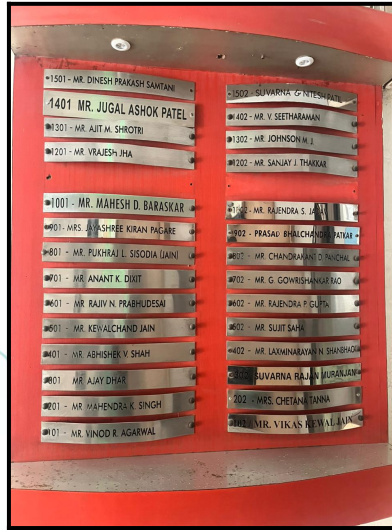 1501 - MR. DINESH PRAKASH SAMTANI
1401 MR. JUGAL ASHOK PATEL
1301 - MR. AJIT M. SHROTRI
1201 - MR. VRAJESH JHA
1001 - MR. MAHESH D. BARASKAR
901 - MRS. JAYASHREE KIRAN PAGARE
801 - MR. PUKHRAJ L. SISODIA (JAIN)
701 - MR. ANANT K. DIXIT
601 - MR. RAJIV N. PRABHUDESAI
501 - MR. KEWALCHAND JAIN
401 - MR. ABHISHEK V. SHAH
301 - MR. AJAY DHAR
201 - MR. MAHENDRA K. SINGH
101 - MR. VINOD R. AGARWAL
1502 - SUVARNA & NITESH PATIL
1402 - MR. V. SEETHARAMAN
1302 - MR. JOHNSON M. J.
1202 - MR. SANJAY J. THAKKAR
1002 - MR. RAJENDRA S.
902 - PRASAD BHALCHANDRA PATKAR
802 - MR. CHANDRAKANT D. PANCHAL
702 - MR. G. GOWRISHANKAR RAO
602 - MR. RAJENDRA P. GUPTA
502 - MR. SUJIT SAHA
402 - MR. LAXMINARAYAN N. SHANBHAG
SUVARNA RAJAN MURANJAN
202 - MRS. CHETANA TANNA
102 - MR. VIKAS KEWAL JAIN